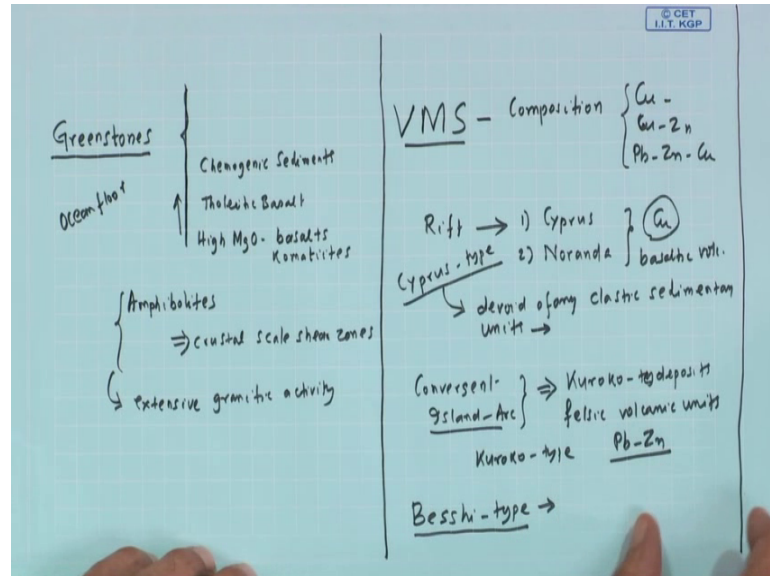 © CET
I.I.T. KGP
Greenstones
Ocean floor
Chemogenic Sediments
Tholeiitic Basalt
High MgO - basalts
Komatiites
Amphibolites
⇒ crustal scale shear zones
extensive granitic activity
VMS - Composition
Cu -
Cu-Zn
Pb-Zn-Cu
Rift → 1) Cyprus
2) Noranda
Cu
basaltic volc.
Cyprus-type
devoid of any clastic sedimentary
units →
Convergent-
Island-Arc
⇒ Kuroko-
deposits
felsic volcanic units
Kuroko-type
Pb-Zn
Besshi-type →